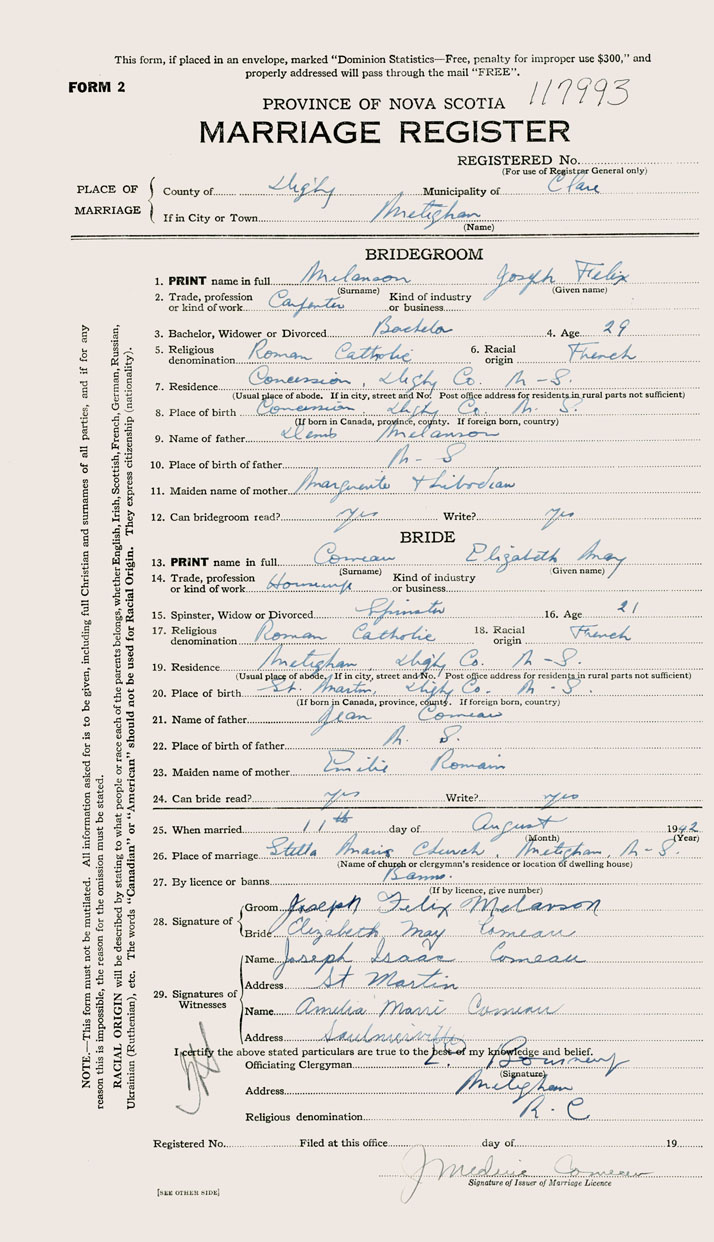 This form, if placed in an envelope, marked "Dominion Statistics—Free, penalty for improper use $300," and
properly addressed will pass through the mail "FREE".
FORM 2
117993
PROVINCE OF NOVA SCOTIA
MARRIAGE REGISTER
REGISTERED No.
(For use of Registrar General only)
PLACE OF MARRIAGE
County of Digby Municipality of Clare
If in City or Town Meteghan
(Name)
BRIDEGROOM
1. PRINT name in full Melanson Joseph Felix
(Surname) (Given name)
2. Trade, profession or kind of work Carpenter Kind of industry or business
3. Bachelor, Widower or Divorced Bachelor 4. Age 29
5. Religious denomination Roman Catholic 6. Racial origin French
7. Residence Concession, Digby Co. N-S.
(Usual place of abode. If in city, street and No. Post office address for residents in rural parts not sufficient)
8. Place of birth Concession, Digby Co. N. S.
(If born in Canada, province, county. If foreign born, country)
9. Name of father Denis Melanson
10. Place of birth of father N-S
11. Maiden name of mother Marguerite Thibodeau
12. Can bridegroom read? yes Write? yes
BRIDE
13. PRiNT name in full Comeau Elizabeth May
(Surname) (Given name)
14. Trade, profession or kind of work Housewife Kind of industry or business
15. Spinster, Widow or Divorced Spinster 16. Age 21
17. Religious denomination Roman Catholic 18. Racial origin French
19. Residence Meteghan, Digby Co. N-S.
(Usual place of abode. If in city, street and No. Post office address for residents in rural parts not sufficient)
20. Place of birth St. Martin, Digby Co. N-S.
(If born in Canada, province, county. If foreign born, country)
21. Name of father Jean Comeau
22. Place of birth of father N. S.
23. Maiden name of mother Emilie Romain
24. Can bride read? yes Write? yes
25. When married 11th day of August 1942
(Month) (Year)
26. Place of marriage Stella Maris Church, Meteghan, N-S.
(Name of church or clergyman's residence or location of dwelling house)
27. By licence or banns Banns.
(If by licence, give number)
28. Signature of
Groom Joseph Felix Melanson
Bride Elizabeth May Comeau
29. Signatures of Witnesses
Name Joseph Isaac Comeau
Address St Martin
Name Amelia Marie Comeau
Address Saulnierville
I certify the above stated particulars are true to the best of my knowledge and belief.
Officiating Clergyman L.
(Signature)
Address Meteghan
Religious denomination R. C
Registered No. Filed at this office day of 19
J Medric Comeau
Signature of Issuer of Marriage Licence
[SEE OTHER SIDE]
NOTE.—This form must not be mutilated. All information asked for is to be given, including full Christian and surnames of all parties, and if for any
reason this is impossible, the reason for the omission must be stated.
RACIAL ORIGIN will be described by stating to what people or race each of the parents belongs, whether English, Irish, Scottish, French, German, Russian,
Ukrainian (Ruthenian), etc. The words "Canadian" or "American" should not be used for Racial Origin. They express citizenship (nationality).